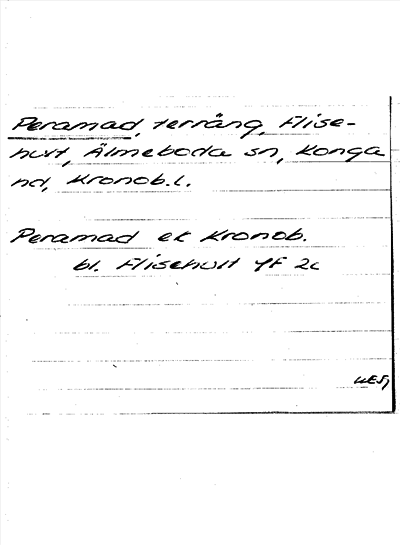 Peramad, terräng, Flise-
hult, Älmeboda sn, Konga
hd, Kronob.l.
Peramad ek Kronob.
bl. Flisehult 4F 2c